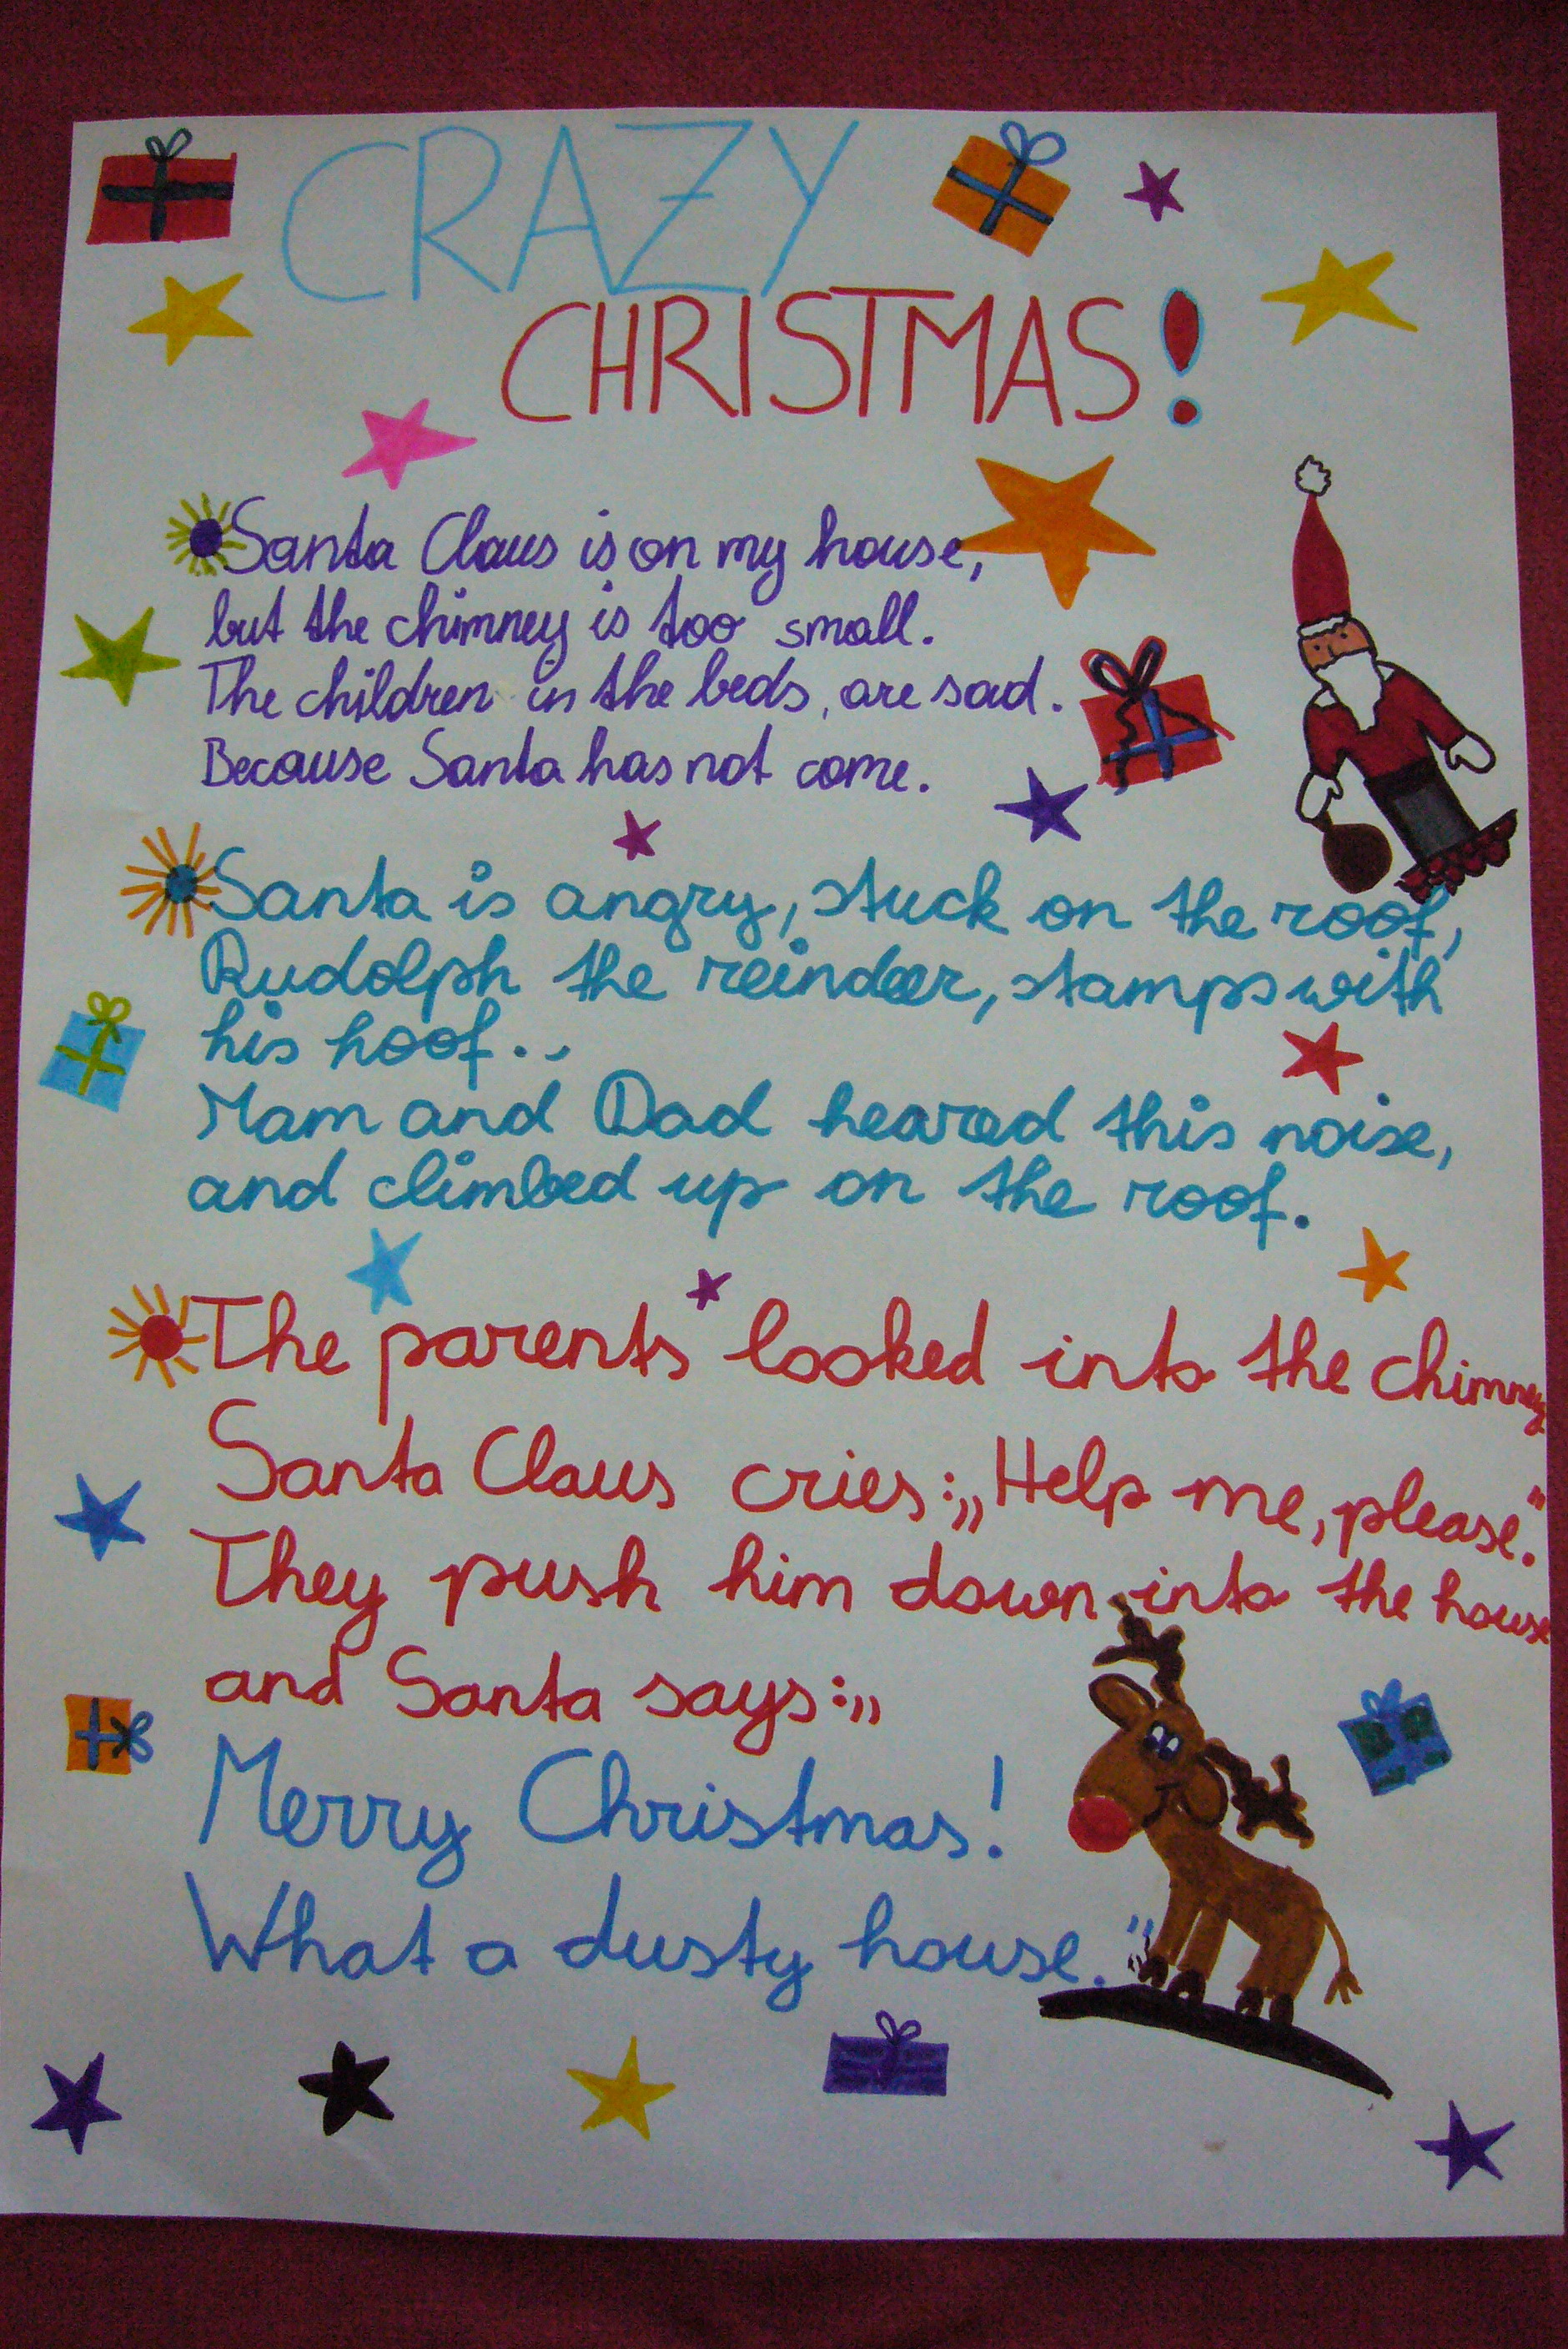 CRAZY
CHRISTMAS!
Santa Claus is on my house,
but the chimney is too small.
The children in the beds, are sad.
Because Santa has not come.
Santa is angry, stuck on the roof,
Rudolph the reindeer, stamps with
his hoof..,
Mam and Dad heared this noise,
and climbed up on the roof.
The parents looked into the chimney
Santa Claus cries:„Help me, please."
They push him down into the house
and Santa says:„
Merry Christmas!
What a dusty house."